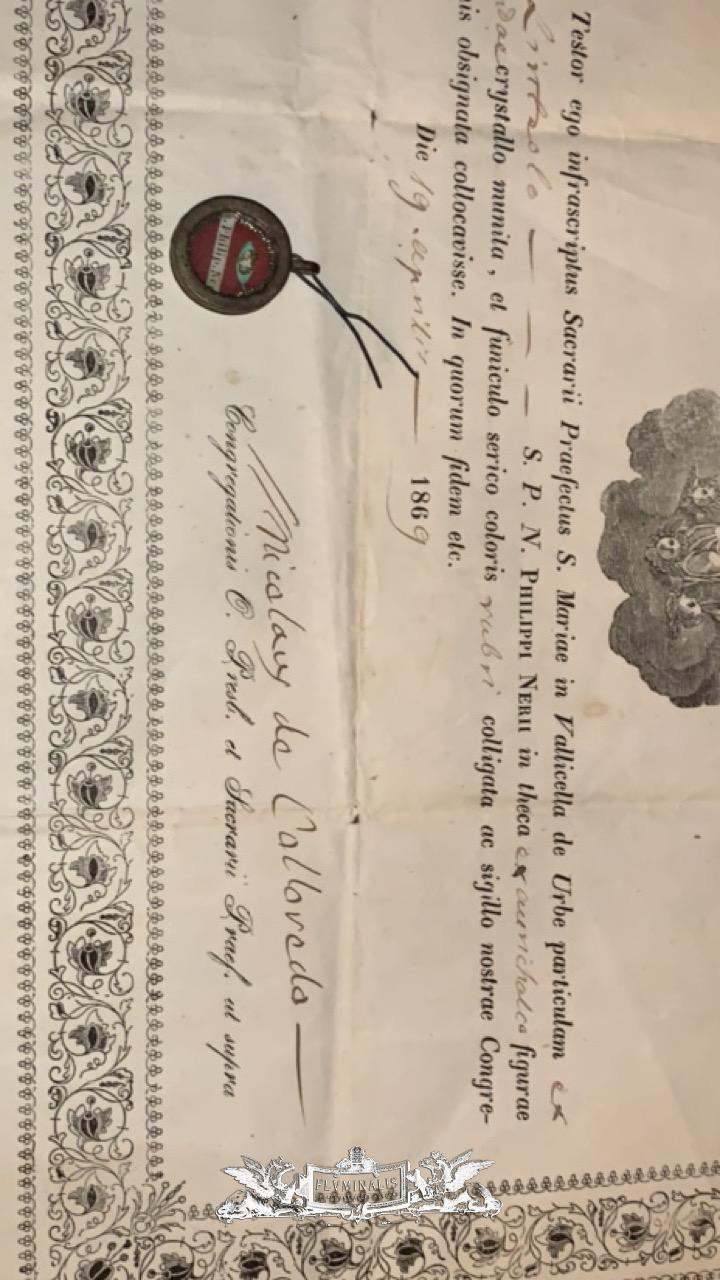 Testor ego infrascriptus Sacrarii Praefectus S. Mariae in Vallicella de Urbe particulam ex
— — — S. P. N. PHILIPPI NERII in theca ex aurichalco figurae
crystallo munita, et funiculo serico coloris rubri colligata ac sigillo nostrae Congre-
is obsignata collocavisse. In quorum fidem etc.
Die 19. aprilis — 1869
Nicolaus de Colloredo —
Congregationis O. Presb. et Sacrarii Praef. ut supra
Philip. N
FLVMINALIS